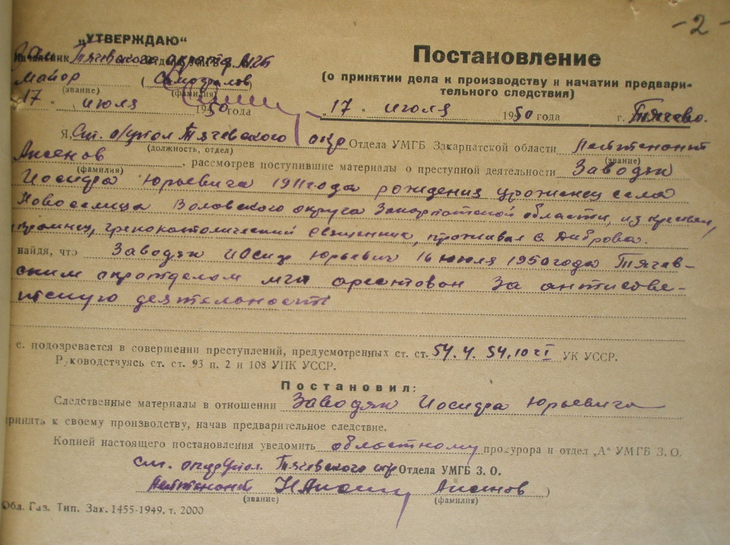 -2-
„УТВЕРЖДАЮ“
Начальник Тячевского окротд. МГБ
Майор (Самодалов)
(звание) (фамилия)
17. июля 1950 года
Постановление
(о принятии дела к производству и начатии предвари-
тельного следствия)
17. июля 1950 года г. Тячево.
Я, Ст. о/упол Тячевского окр Отдела УМГБ Закарпатской области Лейтенант
(должность, отдел) (звание)
Аксенов, рассмотрев поступившие материалы о преступной деятельности Заводяк
(фамилия)
Иосифа Юрьевича 1911 года рождения уроженец села
Новоселица Воловского округа Закарпатской области, из крестьян,
украинец, грекокатолический священник, проживал с. Диброва.
найдя, что Заводяк Иосиф Юрьевич 16 июля 1950 года Тячев-
ским окротделом МГБ арестован за антисове-
тскую деятельность
с. подозревается в совершении преступлений, предусмотренных ст. ст. 54.4. 54.10 ч I УК УССР.
Руководствуясь ст. ст. 93 п. 2 и 108 УПК УССР.
Постановил:
Следственные материалы в отношении Заводяк Иосифа Юрьевича
принять к своему производству, начав предварительное следствие.
Копией настоящего постановления уведомить областному прокурора и отдел „А“ УМГБ З. О.
ст. оперупол. Тячевского окр Отдела УМГБ З. О.
Лейтенант Аксенов)
(звание) (фамилия)
Обл. Газ. Тип. Зак. 1455-1949. т. 2000